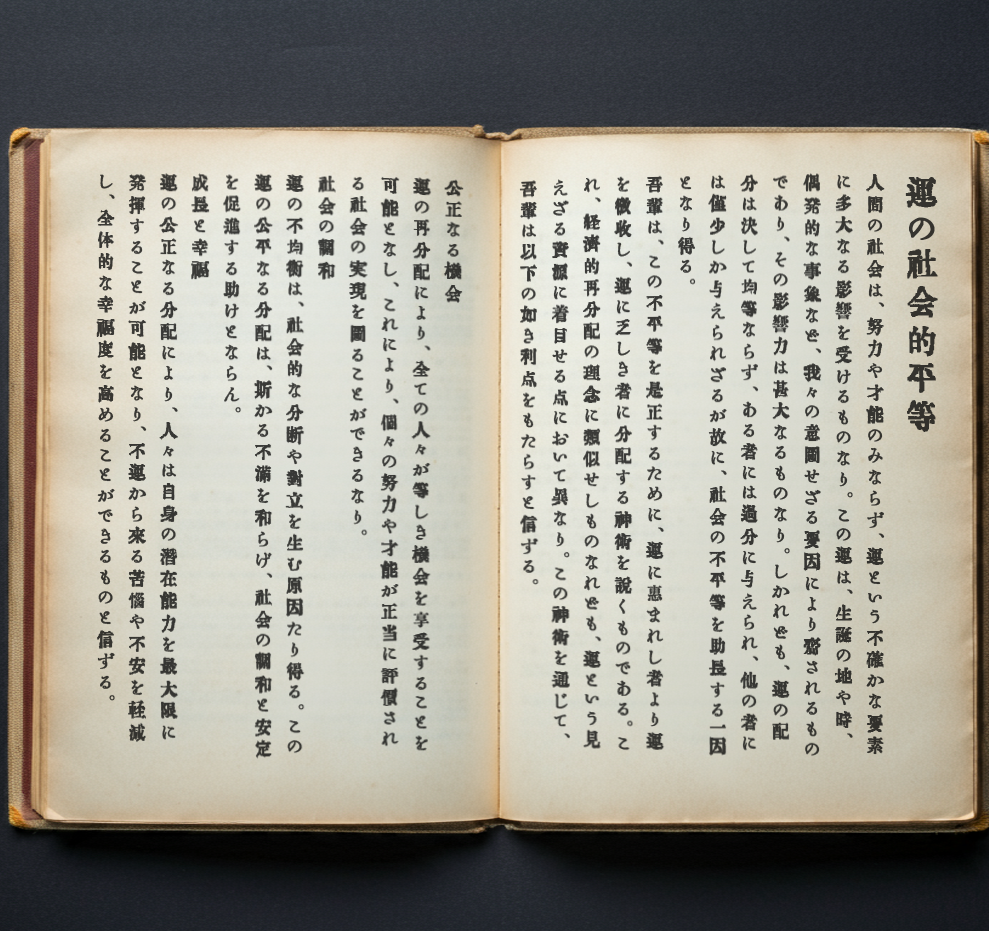 運の社会的平等
人間の社会は、努力や才能のみならず、運という不確かな要素
に多大なる影響を受けるものなり。この運は、生誕の地や時、
偶発的な事象など、我々の意圖せざる要因により齎されるもの
であり、その影響力は甚大なるものなり。しかれども、運の配
分は決して均等ならず、ある者には過分に与えられ、他の者に
は僅少しか与えられざるが故に、社会の不平等を助長する一因
となり得る。
吾輩は、この不平等を是正するために、運に恵まれし者より運
を徴收し、運に乏しき者に分配する神術を說くものである。こ
れ、経済的再分配の理念に類似せしものなれども、運という見
えざる資源に着目せる点において異なり。この神術を通じて、
吾輩は以下の如き利点をもたらすと信ずる。
公正なる機会
運の再分配により、全ての人々が等しき機会を享受することを
可能となし、これにより、個々の努力や才能が正当に評價され
る社会の実現を圖ることができるなり。
社会の調和
運の不均衡は、社会的な分断や對立を生む原因たり得る。この
運の公平なる分配は、斯かる不滿を和らげ、社会の調和と安定
を促進する助けとならん。
成長と幸福
運の公正なる分配により、人々は自身の潜在能力を最大限に
発揮することが可能となり、不運から來る苦惱や不安を軽減
し、全体的な幸福度を高めることができるものと信ずる。